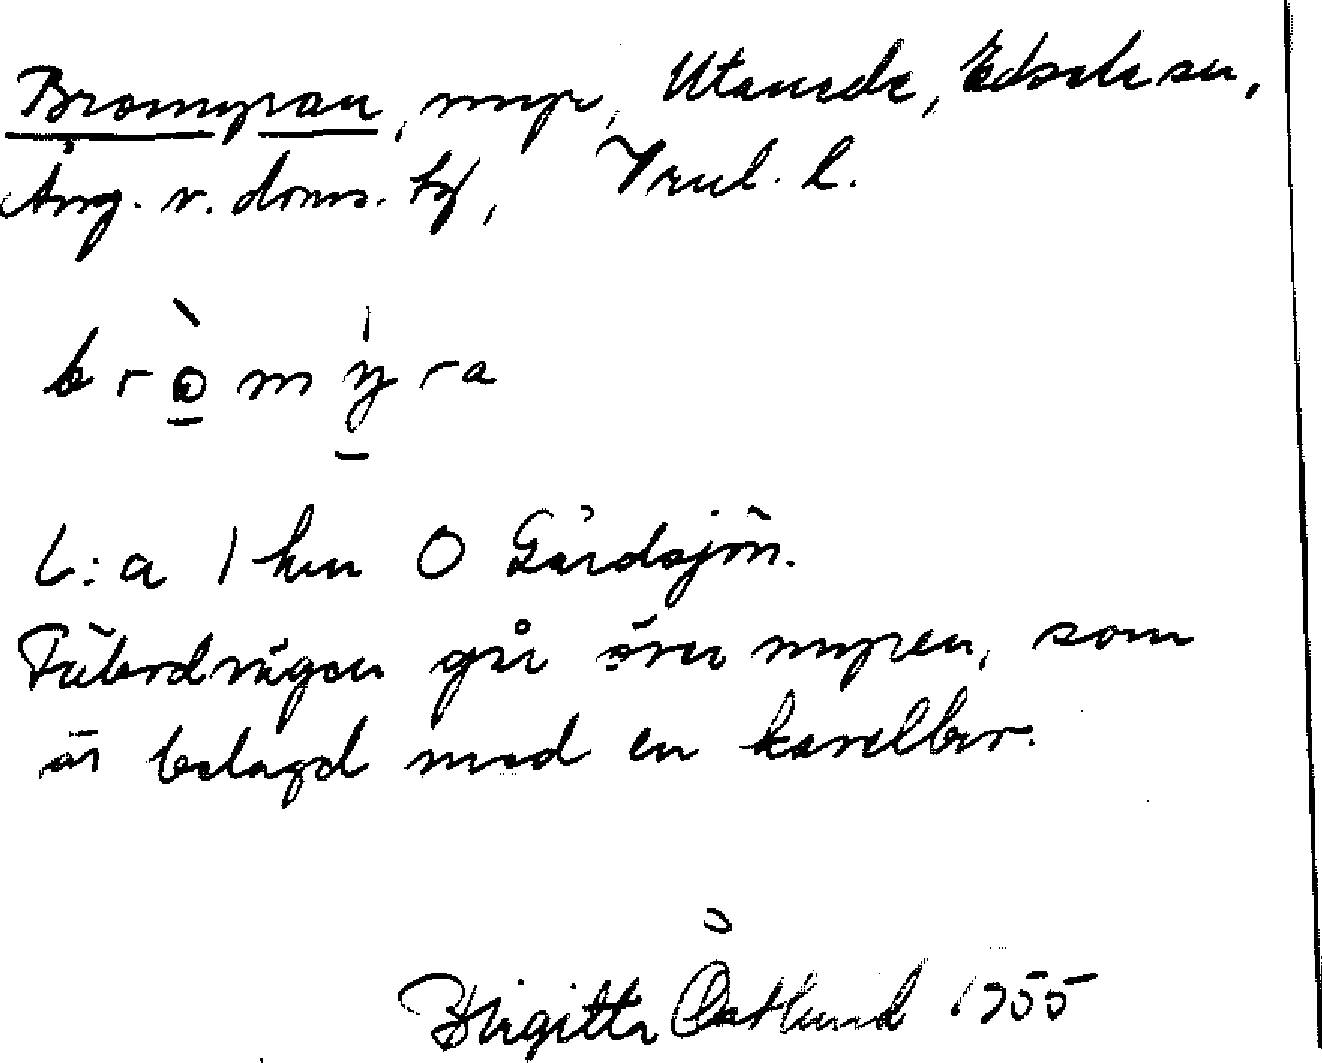 Bromyran, myr, Utanede, Edsele sn,
Ång. v. doms. tg,
bròmýra
C:a 1 km O Gårdsjön.
Fäbodvägen går över myren, som
är belagd med en kavelbro.
Birgitta Östlund 1955